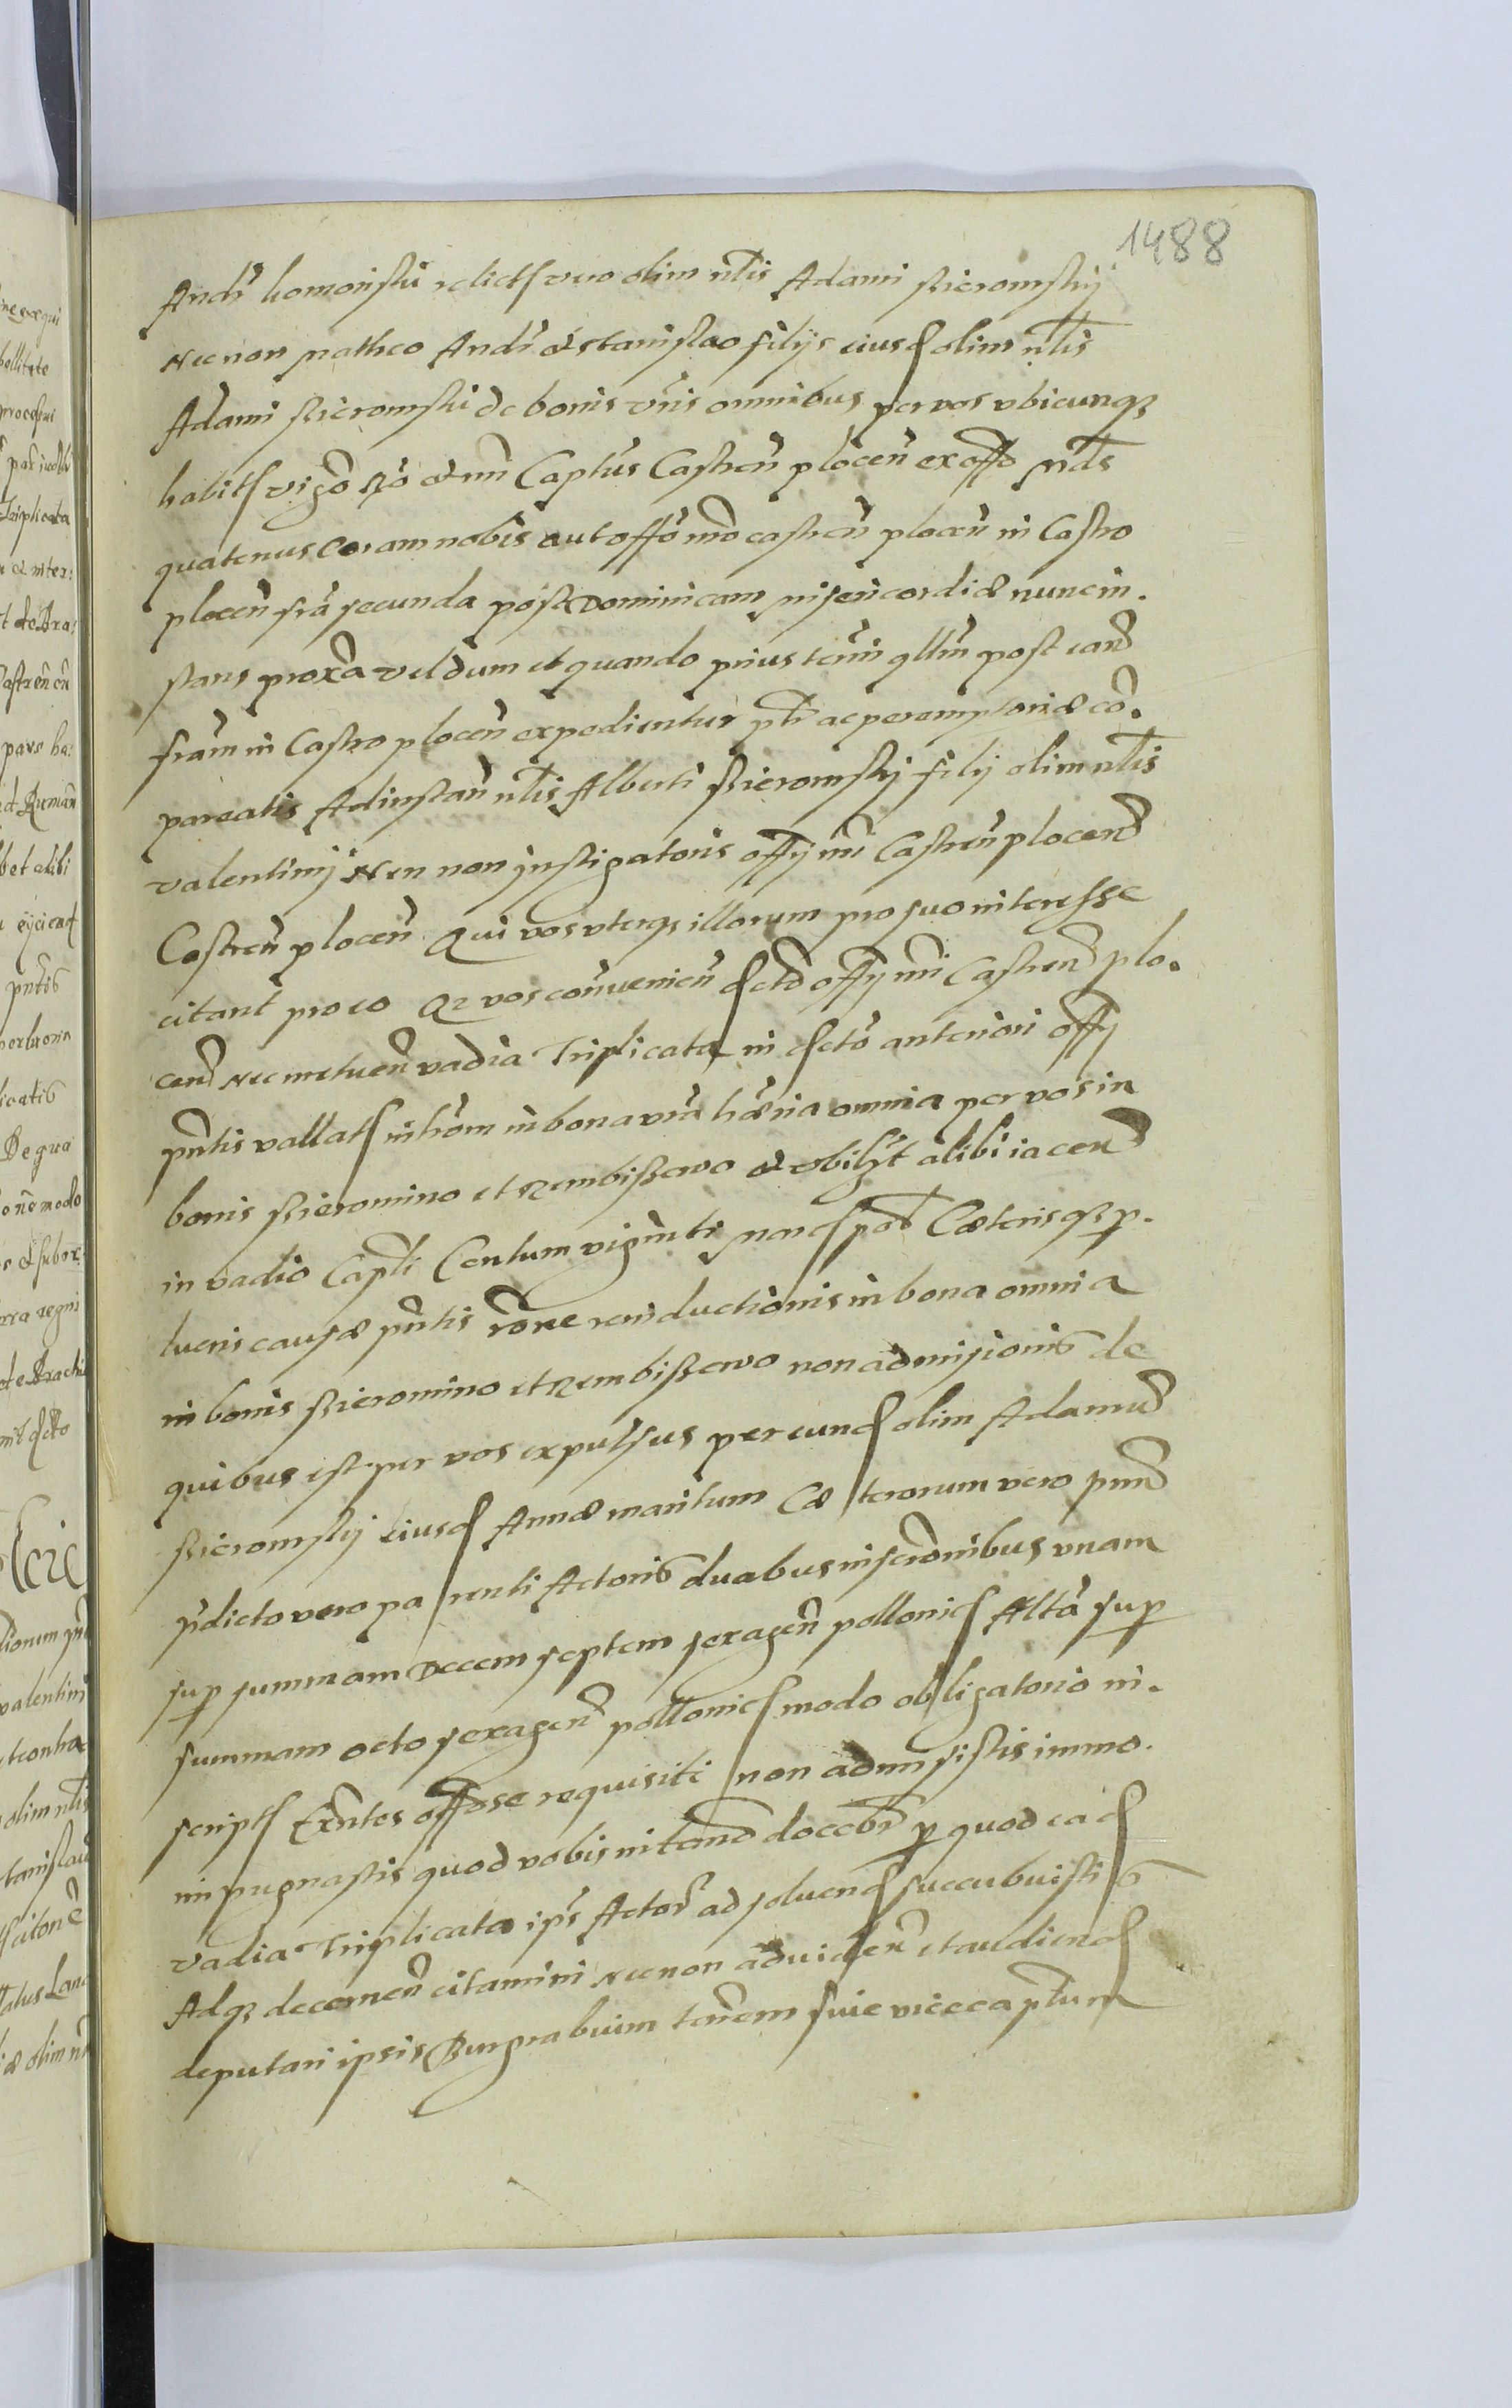 1488
Andr̃ komoriski relictæ viro olim nłis Adami Bieromskij
Necnon Matheo Andr̃ & Stanislao filijs eiusd olim nłis
Adami Bieromski de bonis vr̃is omnibus per vos vbicunqʒ
habitis vigo Rō & nr̃i Captus Castren̄ plocen̄ ex offo Mds
quatenus coram nobis aut offō nro castren̄ plocen̄ in Castro
plocen̄ fr̃a secunda post Dominicam misericordiæ nunc in.
stans prox̃a vel dum et quando prius term̄ qllm̄ post eand
fram in Castro plocen̄ expedientur ptr̃ ac peremptoriæ co.
pareatis Ad instan̄ nłis Alberti Bieromskij filij olim nłis
valentinj Nec non jnstigatoris offij nr̃i Castren̄ plocen̄
Castren̄ plocen̄ Qui vos vterqʒ illorum pro suo interesse
citant pro eo Qʒ vos conuenien̄ dctō offij nr̃i Castren̄ plo.
cen̄ Nec metuen̄ vadia Triplicata in dcto anteriori offij
pñtis vallat introm̄ in bona vr̃a hæria omnia per vos in
bonis Bieromino et Rembissewo & vbilʒt alibi iacen̄
in vadio Capłi Centum viginti marc pōd Cæterisqʒ p.
lucris causæ pñtis r̃one reinductionis in bona omnia
in bonis Bieromino et Rembissewo non admisionis de
quibus est per vos expulsus per eund olim Adamū
Bieromskij eiusd Annæ maritum Cæterorum vero pnrū
pdicto vero parenti Actoris duabus inscrōnibus vnam
sup summam Decem septem sexagen̄ pollonic Altā sup
summam octo sexagen̄ pollonic modo obligatorio in.
script Exñtes offose requisiti non admisistis immo.
impugnastis quod vobis nitand docebr̃ p quod ead
vadia Triplicata ips̄ Actor̃ ad soluend succubuistis
Adqʒ decernen̄ citamini Necnon ad viden̄ et audiend
deputari ipsis Burgrabium terrem siue vicecaptum